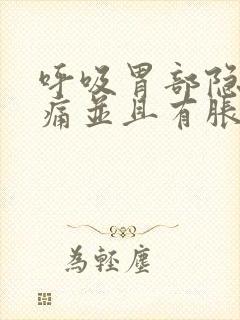 呼吸胃部隐
痛並且有脹
为輕塵